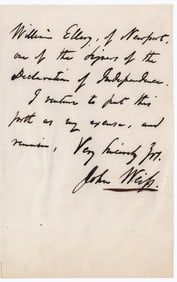 William Ellery, of Newport,
one of the Signers of the
Declaration of Independence.
I venture to put this
forth as my excuse, and
remain, Very Sincerely Yrs.
John Weiss.